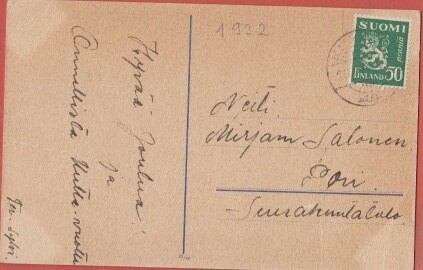 Hyvää Joulua!
ja
Onnellista Uutta-vuotta
1932
SUOMI
FINLAND 50
Neiti
Mirjam Salonen.
Pori.
Seurakuntatalo.